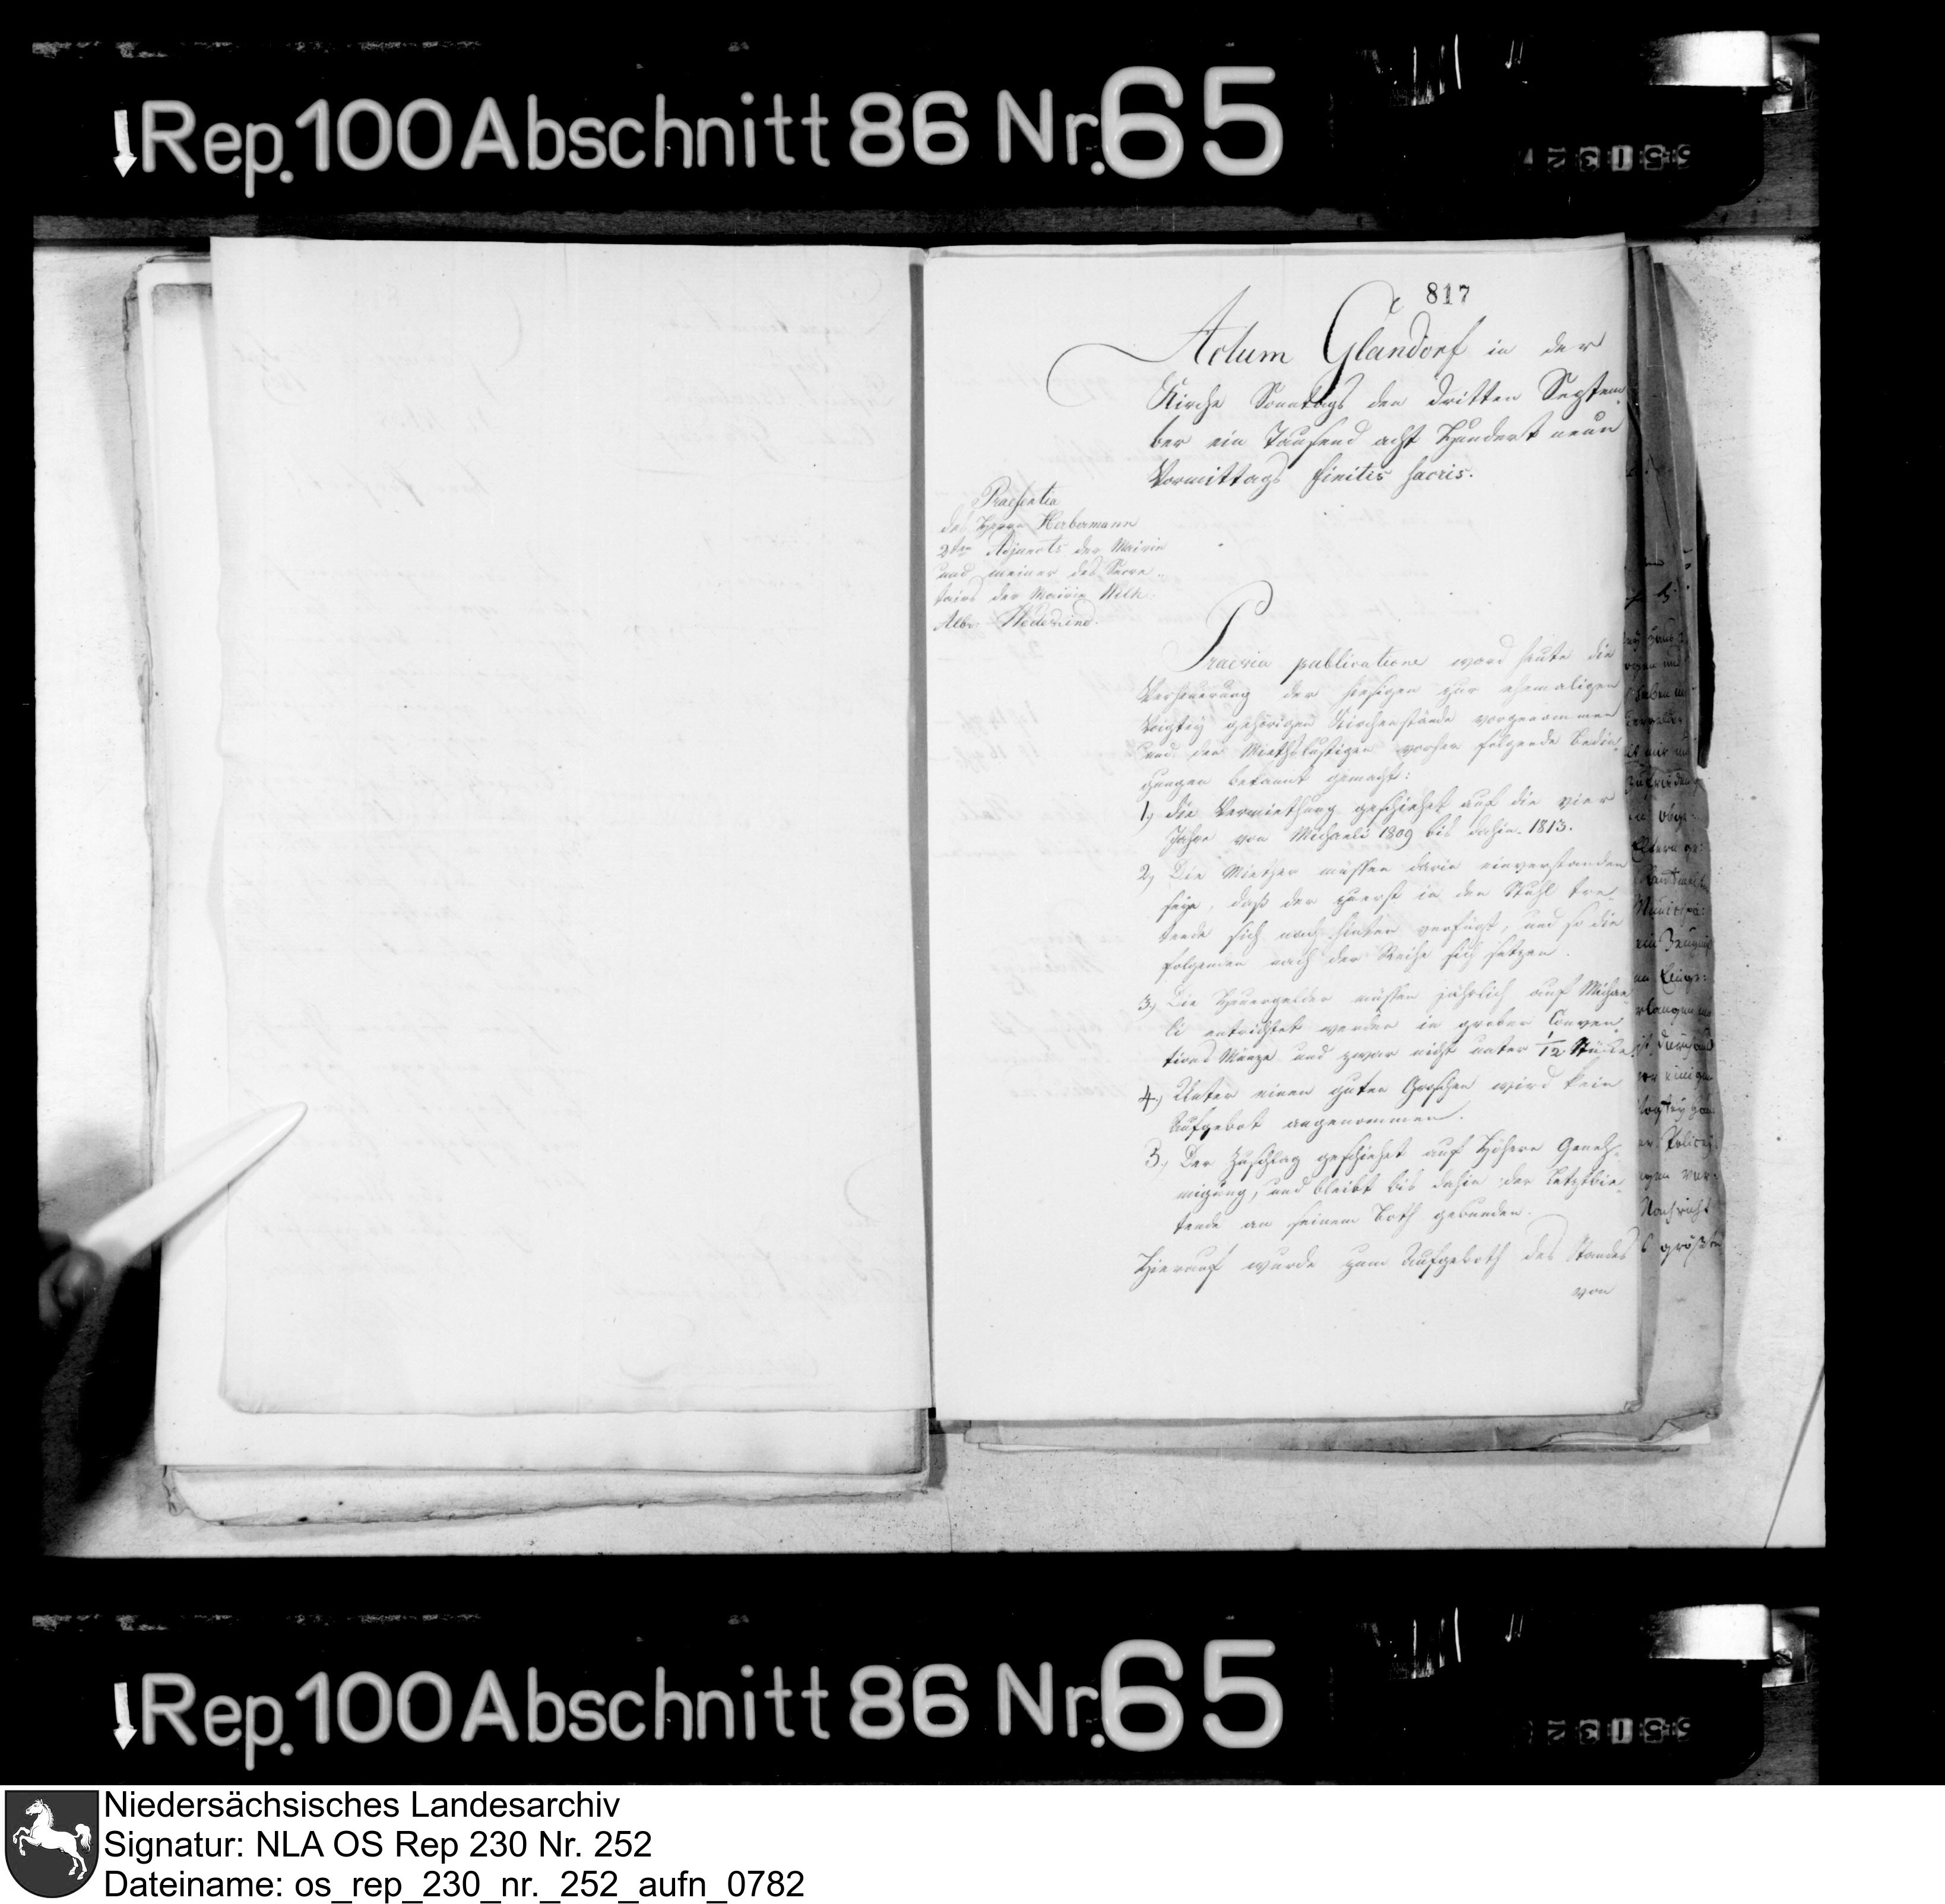 Rep. 100 Abschnitt 86 Nr. 65
817
Actum Glandorf in der
Kirche Sonntags den dritten Septem
ber ein Tausend acht Hundert neun
Vormittags finitis sacris.
Praesentia
des Herrn Herbermann
2ten Adjuncts der Mairie
und meiner des Secre-
tairs der Mairie Wilh.
Albr. Wedekind.
Praevia publicatione ward heute die
Verheuerung der hiesigen zur ehemaligen
Voigtey gehörigen Kirchenstände vorgenommen
und den Miethslustigen vorher folgende Bedin-
gungen bekannt gemacht:
1, die Vermiethung geschiehet auf die vier
Jahre von Michaeli 1809 bis dahin 1813.
2, Die Miether müssen darin einverstanden
seyn, daß der zuerst in den Stuhl tre-
tende sich nach hinten verfügt, und so die
folgenden nach der Reihe sich setzen.
3, Die Heuergelder müssen jährlich auf Michae-
li entrichtet werden in grober Conven-
tions Münze und zwar nicht unter 1/12 Stücke
4, Unter einen guten Groschen wird kein
Aufgebot angenommen.
5, Der Zuschlag geschiehet auf Höhere Geneh-
migung, und bleibt bis dahin der Letztbie-
tende an seinem Both gebunden.
Hierauf wurde zum Aufgeboth des Standes
von
Rep. 100 Abschnitt 86 Nr. 65
Niedersächsisches Landesarchiv
Signatur: NLA OS Rep 230 Nr. 252
Dateiname: os_rep_230_nr._252_aufn_0782